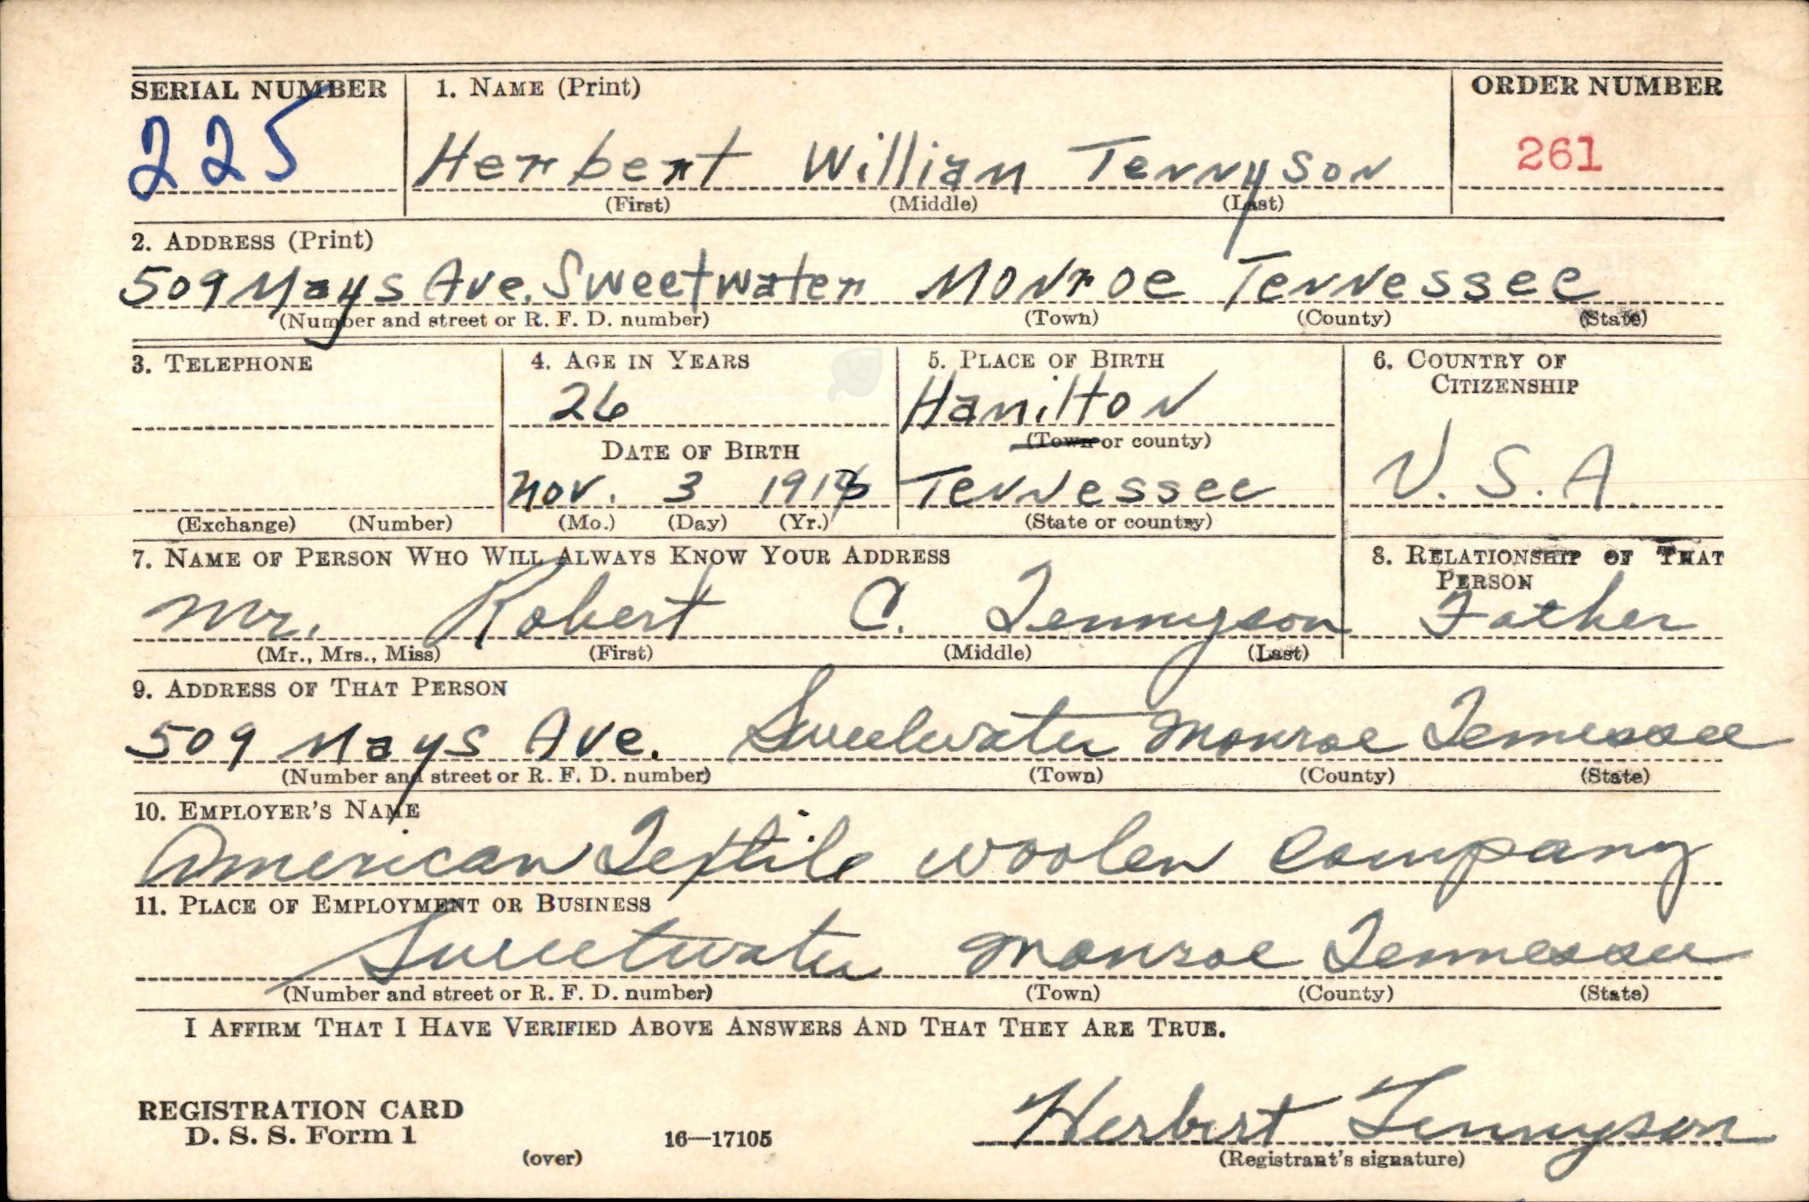 SERIAL NUMBER 1. NAME (Print) ORDER NUMBER
225 Herbert William Tennyson 261
(First) (Middle) (Last)
2. ADDRESS (Print)
509 Mays Ave. Sweetwater Monroe Tennessee
(Number and street or R. F. D. number) (Town) (County) (State)
3. TELEPHONE 4. AGE IN YEARS 5. PLACE OF BIRTH 6. COUNTRY OF
CITIZENSHIP
26 Hamilton
DATE OF BIRTH (Town or county)
Nov. 3 Tennessee U.S.A.
(Exchange) (Number) (Mo.) (Day) (Yr.) (State or country)
7. NAME OF PERSON WHO WILL ALWAYS KNOW YOUR ADDRESS 8. RELATIONSHIP OF THAT
PERSON
Mr. Robert C. Tennyson Father
(Mr., Mrs., Miss) (First) (Middle) (Last)
9. ADDRESS OF THAT PERSON
509 Mays Ave. Sweetwater Monroe Tennessee
(Number and street or R. F. D. number) (Town) (County) (State)
10. EMPLOYER'S NAME
American Textile Woolen Company
11. PLACE OF EMPLOYMENT OR BUSINESS
Sweetwater Monroe Tennessee
(Number and street or R. F. D. number) (Town) (County) (State)
I AFFIRM THAT I HAVE VERIFIED ABOVE ANSWERS AND THAT THEY ARE TRUE.
REGISTRATION CARD
D. S. S. Form 1 16—17105 Herbert Tennyson
(over) (Registrant's signature)